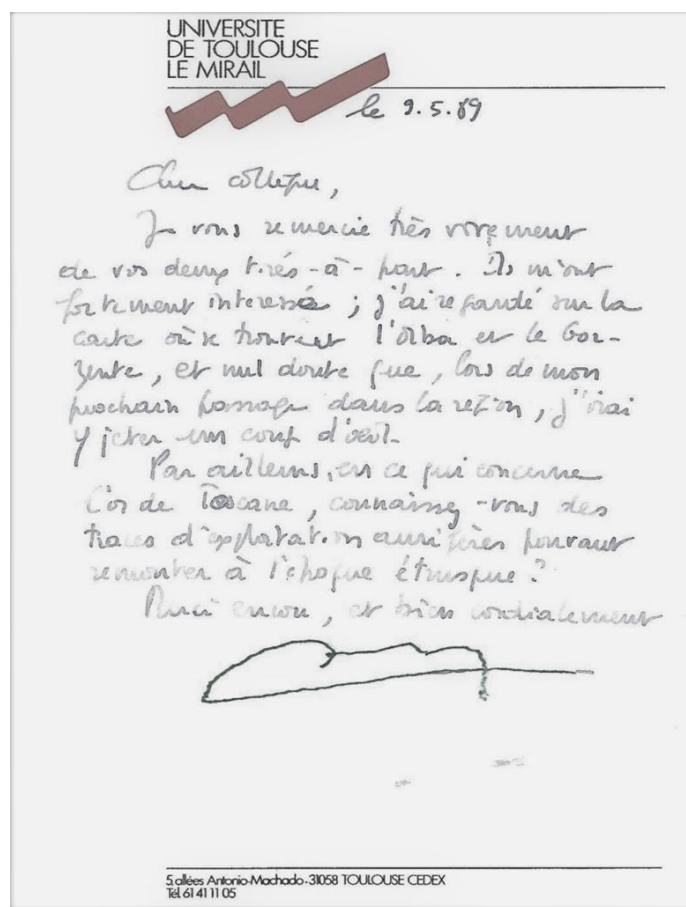 UNIVERSITE
DE TOULOUSE
LE MIRAIL
le 9.5.89
Cher collègue,
Je vous remercie très vivement
de vos deux tirés-à-part. Ils m'ont
fortement interessé ; j'ai regardé sur la
carte où se trouvent l'Orba et le Gor-
zente, et nul doute que, lors de mon
prochain passage dans la région, j'irai
y jeter un coup d'oeil.
Par ailleurs, en ce qui concerne
l'or de Toscane, connaissez-vous des
traces d'exploitation aurifères pouvant
remonter à l'époque étrusque ?
Merci encore, et bien cordialement
5, allées Antonio-Machado - 31058 TOULOUSE CEDEX
Tél. 61 41 11 05